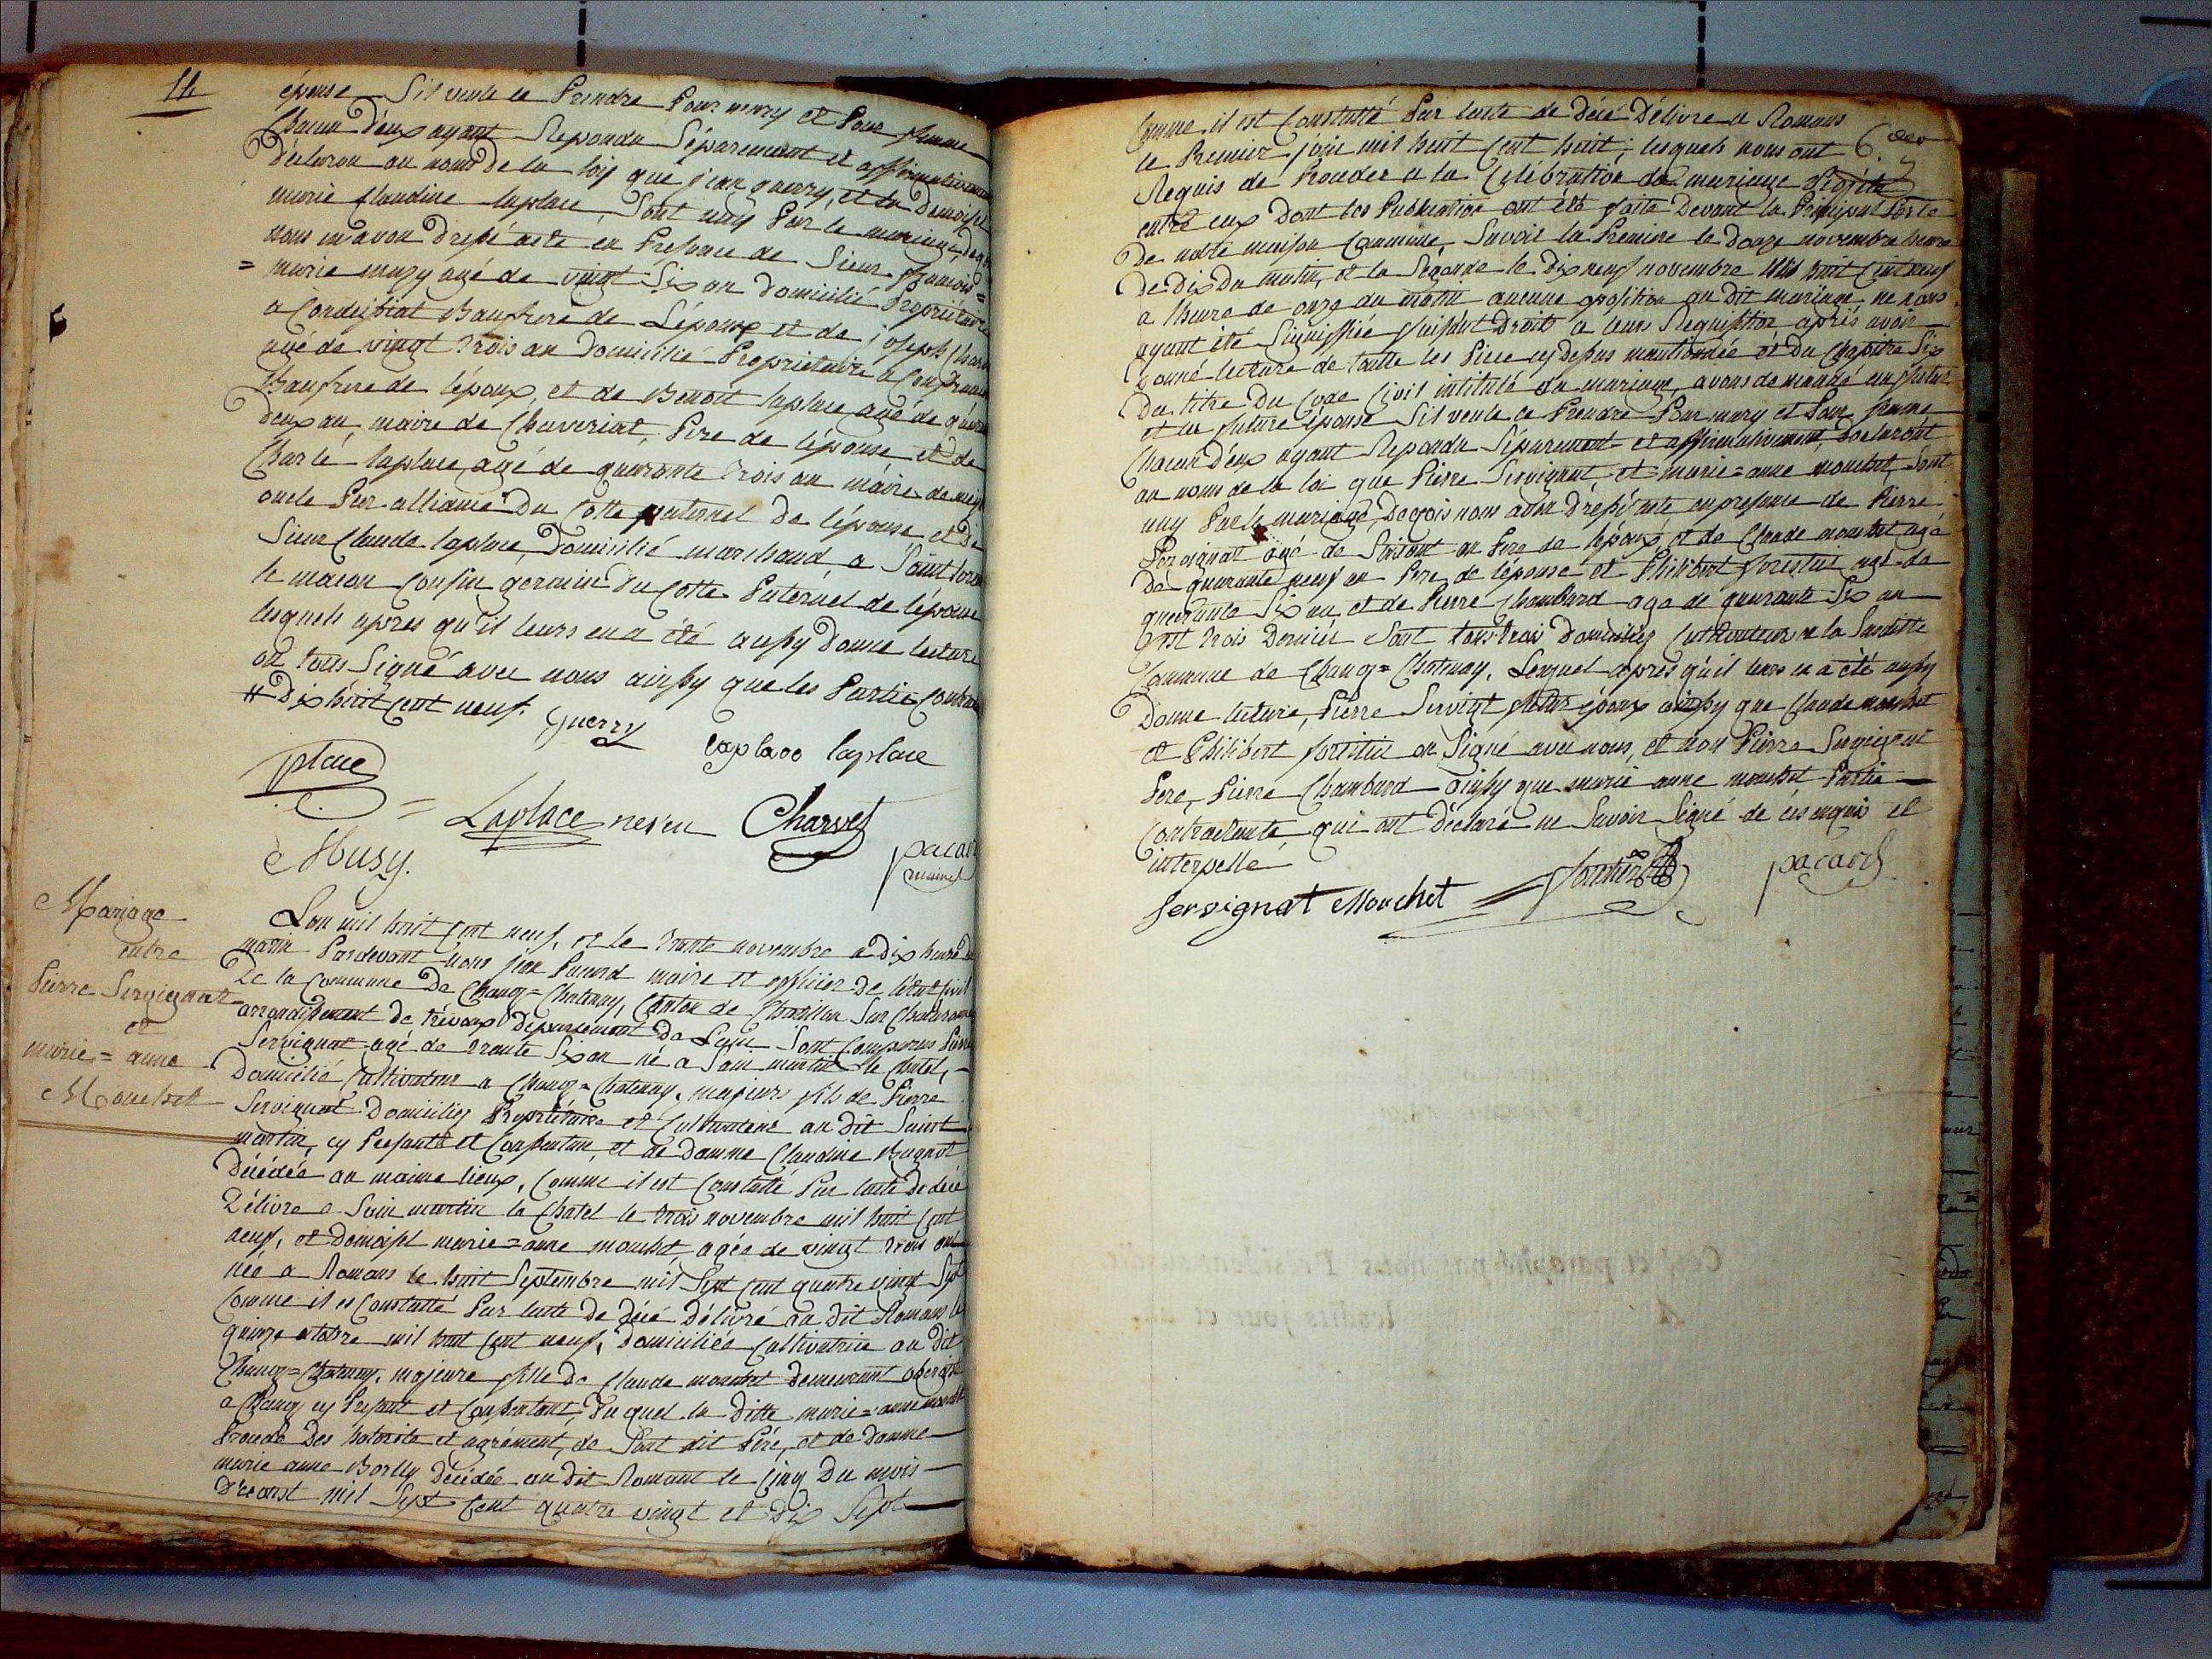 14
épouse Sil veule ce Prendre Pour mary et Pour femme
Chacun d'eux ayant Repondu Séparement et affirmativement
déclaron au nom de la loy que jean guerry, et la Demoisel
marie Claudine laplace, Sont uny Par le mariage, de
nous en avon dressé acte en Presence de Sieur françois =
= marie muzy agé de vingt Six an Domicilié Propriétaire
a Condeissiat Baufrere de L'époux et de joseph Char
agé de vingt trois an Domicilié Propriétaire a
Baufrere de l'époux, et de Benoit laplace agé de
deux an, maire de Chaveriat, Pere de l'épouse et de
Charle laplace agé de quarante trois an maire de
oncle Par alliance du Cotte paternel de l'épouse et de
Sieur Claude laplace Domicilié marchand a Saint
le macon Cousin germain du Cotte Paternel de l'épouse
lesquels apres qu'il leurs en a été aussy donne lecture
on tous Signé avec nous ainssy que les Partie
# Dix huit Cent neuf.
guerry
laplace laplace
place
= Laplace neveu Charvet
Musy.
pacard
maire
Mariage
entre
Pierre Servignat
et
marie = anne
Mouchet
Lan mil huit Cent neuf, et le trante novembre a dix heure du
matin Pardevant nous jean Pacard maire et officier de l'état Civil
de la Commune de Chanoz = Chatenay, Canton de Chatillon Sur Chalaronne
arrondissement de trévoux Département de Lain Sont Comparus Pierre
Servignat agé de trante Six an né a Sain martin le Chatel, -
Domicilié Cultivateur a Chanoz = Chatenay, majeurs fils de Pierre
Servignat Domiciliez Propriétaire et Cultivateur au dit Saint
martin, cy Present et Consentan, et de Damme Claudine Bugnot
Décédée au maime lieux, Comme il est Constatté Par lacte de décé
Délivre a Sain martin le Chatel le trois novembre mil huit Cent
neuf, et Demoisel marie = anne mouchet, agée de vingt trois an
née a Romans le huit Septembre mil Sept Cent quatre vingt Sept
Comme il es Constatté Par lacte de décé Délivré au dit Romans le
quinze octobre mil huit Cent neuf, Domiciliée Cultivatrice au dit
Chanoz = Chatenay, majeure fille de Claude mouchet demeurant
a Chanoz cy Present et Consentant, Duquel la ditte marie = anne mouchet
Procede des hotorite et agrément, de Sont dit Pére, et de Damme
marie anne Borlly Décédée au dit Romant le Cinq Du mois
D'aoust mil Sept Cent quatre vingt et dix Sept
Comme il est Constatté Par lacte de Décé Délivre a Romans
le Premier juin mil huit Cent huit; lesquels nous ont
Requis de Proceder a la Célébration du mariage Projetté
entre eux dont les Publication ont été faite Devant la Principal Porte
de notre maison Commune, Savoir la Premiere le Douze novembre heure
de dix du matin, et la Segonde le Dix neuf novembre mil huit Cent neuf
a lheure de onze du matin aucune oposition au dit mariage ne nous
ayant été Signiffiée faisant Droit a leurs Requisition aprés avoir
donné lecture de toutte les Piece cy dessus mantionnée et du Chapitre Six
du titre Du Code Civil intitulé du mariage, avons demandé au futur
et la future épouse Sil veule ce Prendre Pour mary et Pour femme
Chacun d'eux ayant Repondu Séparement et affirmativement, declaront
au nom de la loi que Pierre Servignat et marie = anne mouchet, Sont
uny Par le mariage, de qois nous avon dréssé acte en presence de Pierre
Servignat agé de Soisant an Pere de l'époux, et de Claude mouchet agé
de quarante neuf an Pere de l'épouse et Philibert agé de
quarante Six an, et de Pierre Chambard age de quarante Six an
trois Dernier Sont tous trois Domiciliez Cultivateur a la Susditte
Commune de Chanoz = Chatenay. Lesquel apres qu'il leurs en a été aussy
Donne lecture, Pierre Servigt futur époux ainssy que Claude mouchet
et Philibert on Signé avec nous, et non Pierre Servignat
Pere, Pierre Chambard ainssy que marie anne mouchet Partie
Contractante qui ont Déclaré ne Savoir Signé de ces enquis et
interpelle
Servignat Mouchet
pacard